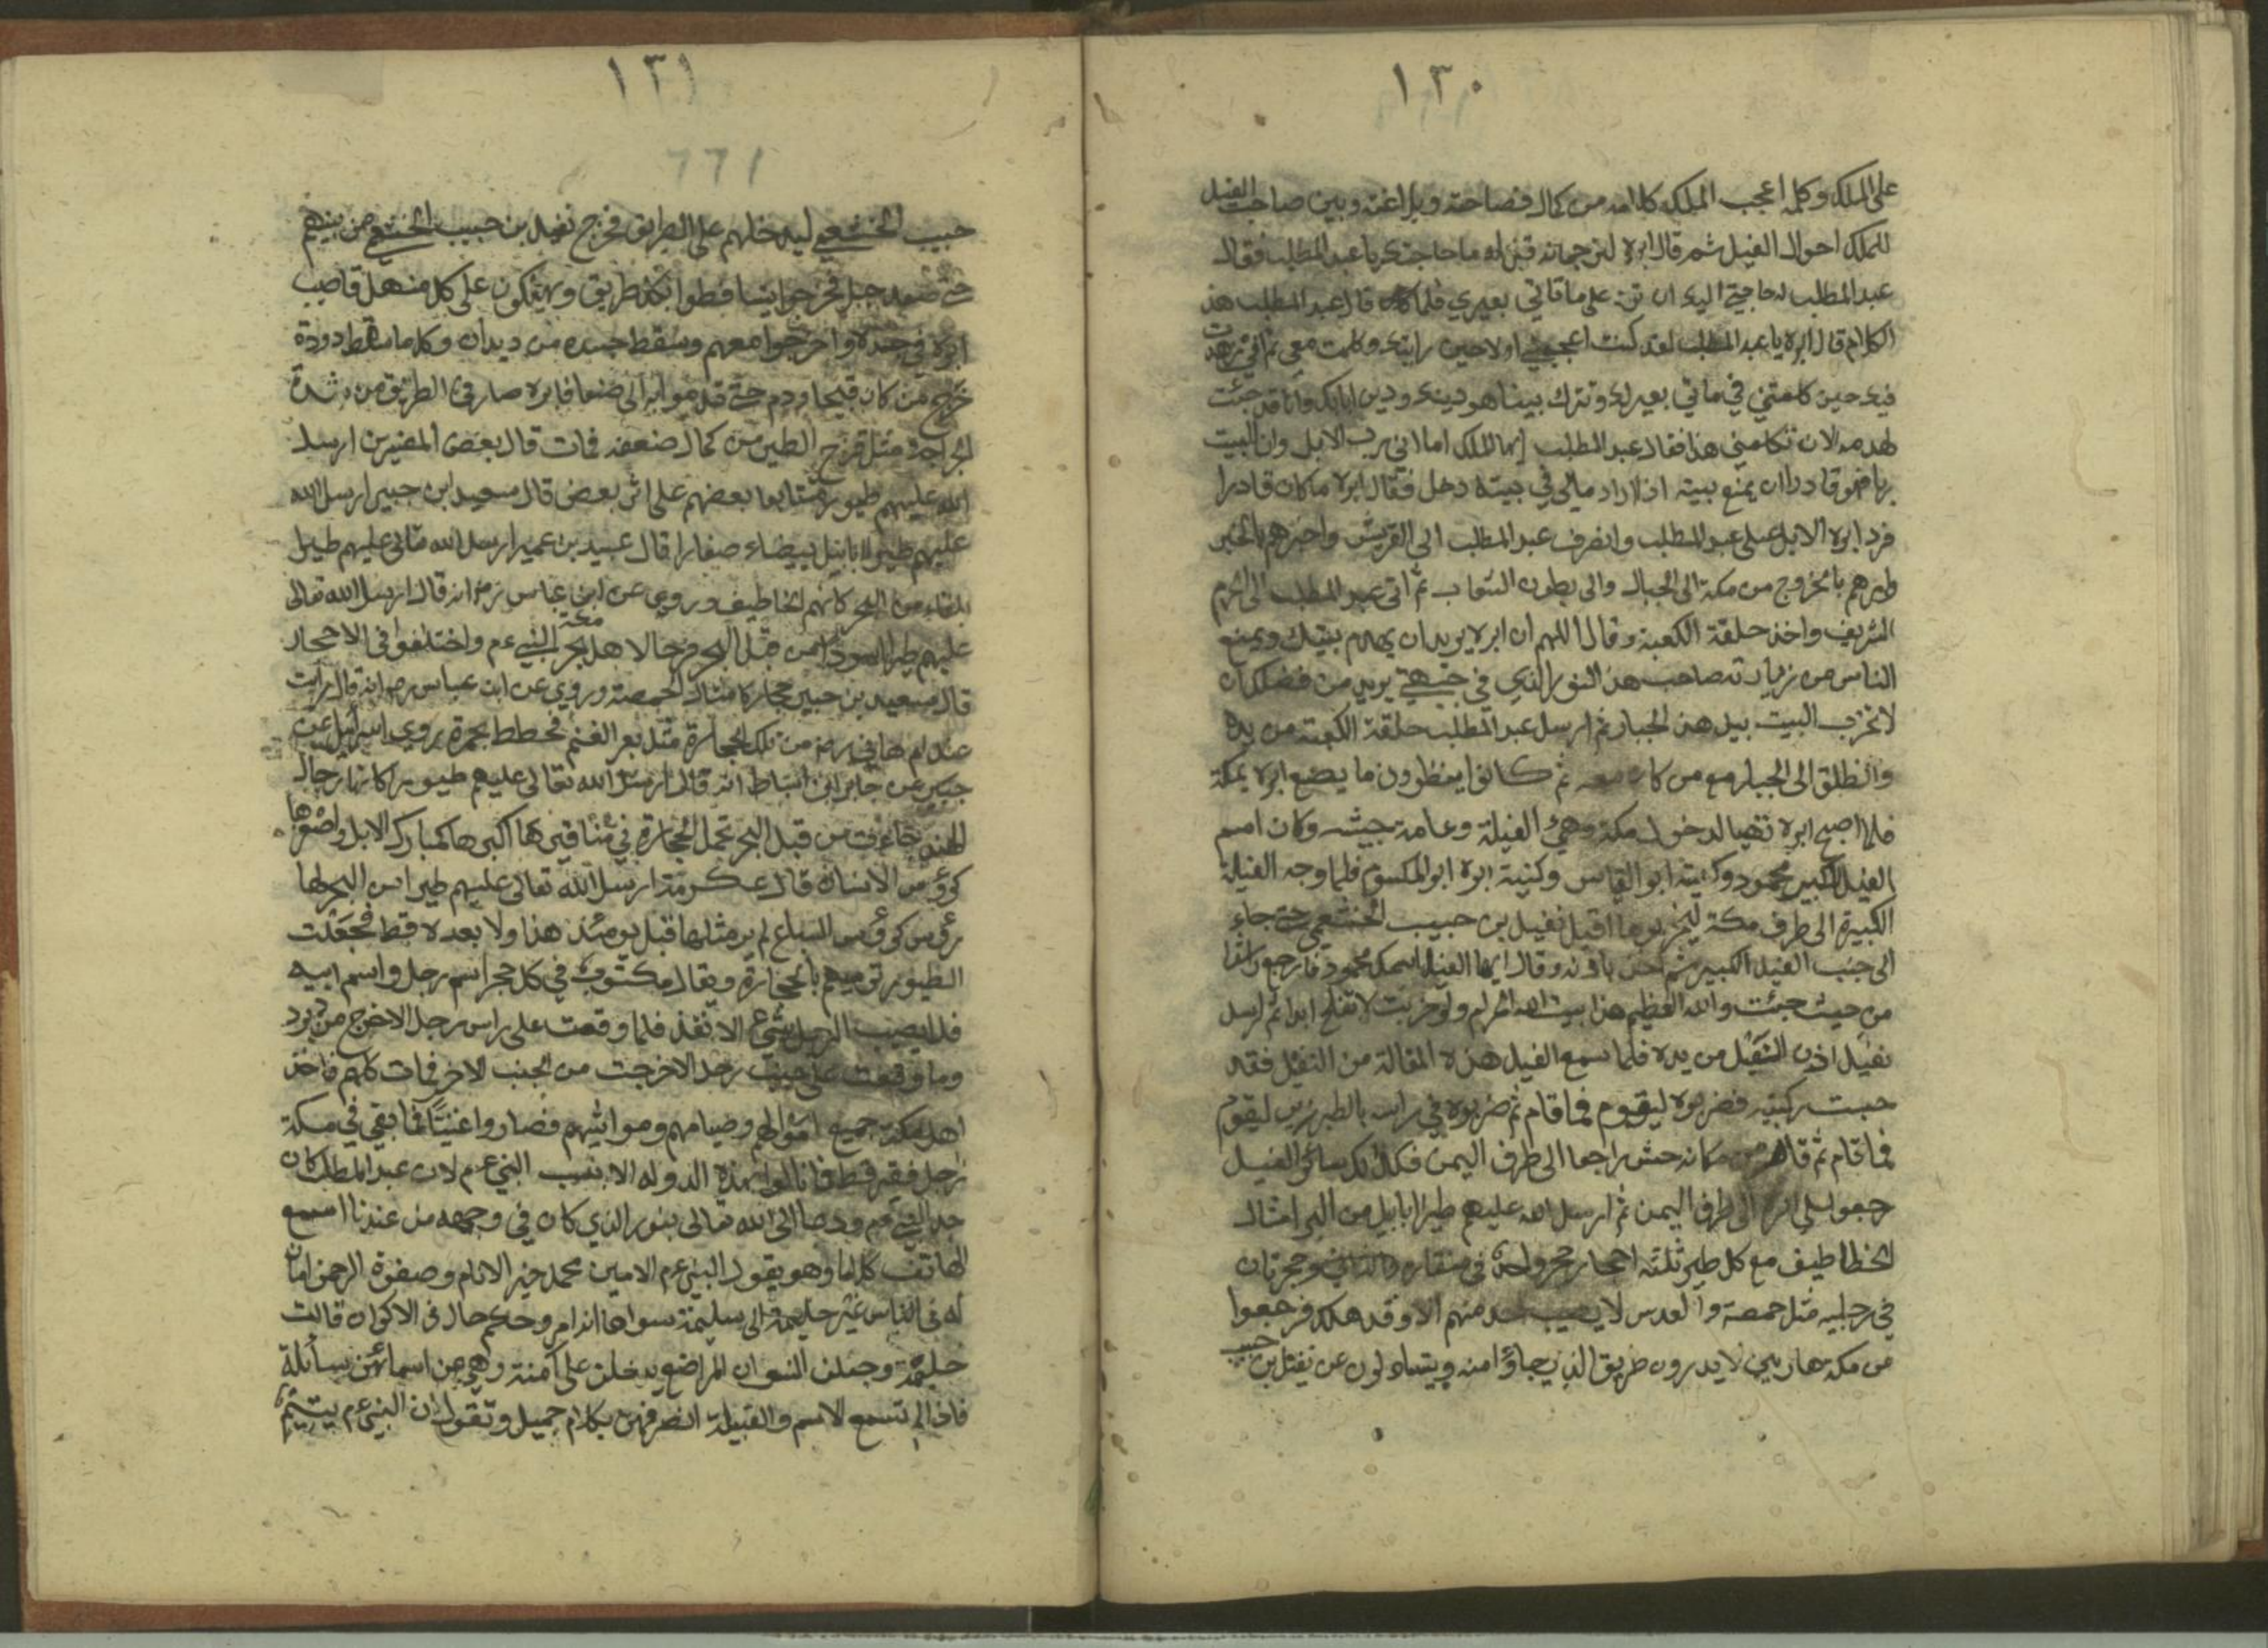 ١٣٠
على الملك وكلمه اعجب الملك كلامه من كمال فصاحته وبلاغته وبين صاحب الفيل
للملك احوال الفيل ثم قال ابره لترجمانه قل له ما حاجتك يا عبد المطلب فقال
عبد المطلب له حاجتي اليك ان ترد على ماقاتي بعيري فلما قال عبد المطلب هذ
الكلام قال ابره يا عبد المطلب لقد كنت اعجبتني اولا حين رايتك وكلمت معي ثم اني زهدت
فيك حين كلمتني في ماتي بعير لك وتترك بيتا هو دينك ودين ابايك وانا قد جئت
لهدمه لان تكلمني هذا فقال عبد المطلب ايها الملك اما اني رب الابل وان للبيت
ربا فهو قادر ان يمنع بيته اذا اراد مالي في بيته دخل فقال ابره ما كان قادرا
فرد ابره الابل على عبد المطلب وانصرف عبد المطلب الى القريش واخبرهم بالخبر
وامرهم بالخروج من مكة الى الجبال والى بطون الشعاب ثم اتى عبد المطلب الى الحرم
الشريف واخذ حلقة الكعبة وقال اللهم ان ابره يريد ان يهدم بيتك ويمنع
الناس من زيارته صاحب هذ النور الذي في جبهتي يريد من فضلك ان
لا تخرب البيت بيد هذ الجبار ثم ارسل عبد المطلب حلقة الكعبة من يده
وانطلق الى الجبل مع من كان معه ثم كانوا ينظرون ما يصنع ابره بمكة
فلما اصبح ابره تهيا لدخول مكة وهيئ الفيلة وعامة جيشه وكان اسم
الفيل الكبير محمود وكنيته ابو العباس وكنية ابره ابو المكسوم فلما وجه الفيلة
الكبيرة الى طرف مكة ليخربوها اقبل نفيل بن حبيب الخشعمي حتى جاء
الى جنب الفيل الكبير ثم اخذ باذنه وقال ايها الفيل اسمك محمود فارجع راشدا
من حيث جئت والله العظيم هذا بيت الله الحرام ولو خربت لا تفلح ابدا ثم ارسل
نفيل اذن الفيل من يده فلما سمع الفيل هذه المقالة من النفيل فقد
حبت ركبتيه فضربوه ليقوم فما قام ثم ضربوه في راسه بالطبرزين ليقوم
فما قام ثم قام من مكانه حتى راجعا الى طرف اليمن فكذلك سائر الفيل
رجعوا الى طرف اليمن ثم ارسل الله عليهم طيرا ابابيل من البحر امثال
الخطاطيف مع كل طير ثلثة احجار حجر واحدة في منقاره وحجرتان
في رجليه مثل حمصة والعدس لا يصيب احد منهم الا وقد هلك فرجعوا
من مكة هاربين لا يدرون طريق الذي جاؤا منه ويتساءلون عن نفيل بن
حبيب
١٣١
١٦٦
حبيب الخشعمي ليدخلهم على الطريق فخرج نفيل بن حبيب الخشعمي من بينهم
حتى صعد جبل فخرجوا يتساقطوا بكل طريق ويهلكون على كل منهل فاصيب
ابره في جسده واخرجوا معهم وسقط جسده من ديدان وكلما سقط دودة
خرج من كان قيحا ودم حتى قدموا به الى صنعا فابره صار في الطريق من شدة
الجراحة مثل فرخ الطير من كمال ضعفه فمات قال بعض المفسرين ارسل
الله عليهم طيورا متتابعا بعضهم على اثر بعض قال سعيد ابن جبير ارسل الله
عليهم طيرا ابابيل بيضاء صغارا قال عبيد بن عمير ارسل الله تعالى عليهم طيرا
بلقاء من البحر كانهم الخاطيف وروي عن ابن عباس رض انه قال ارسل الله تعالى
عليهم طيرا اسودا من قبل البحر فرحا لاهل بحر النبي عم واختلفوا في الاحجار
معجزة
قال سعيد بن جبير حجار كامثال الحمصة وروي عن ابن عباس رض انه قال رايت
عند ام هاني رض من تلك الحجارة مثل بعر الغنم مخطط بحمرة روي اسرائيل عن
جبير عن جابر ابن اسباط انه قال ارسل الله تعالى عليهم طيورا كانها رجال
الهند جاءت من قبل البحر تحمل الحجارة في مناقيرها اكبرها كمبارك الابل واصغرها
كرؤس الانسان قال عكرمة ارسل الله تعالى عليهم طيرا من البحر لها
رؤس كرؤس السباع لم ير مثلها قبل يومئذ هذا ولا بعده قط فجعلت
الطيور ترميهم بالحجارة ويقال مكتوب في كل حجر اسم رجل واسم ابيه
فلا يصيب الرجل شئ الا نفذ فلما وقعت على راس رجل الا خرج من دبره
وما وقعت على جنب رجل الا خرجت من الجنب الاخر فمات كلهم فاخذ
اهل مكة جميع اموالهم وخيامهم ومواشيهم فصاروا اغنيئا فما بقي في مكة
رجل فقير قط فانالوا بهذه الدولة الا بسبب النبي عم لان عبد المطلب كان
جد النبي عم ودعا الى الله تعالى بنور الذي كان في وجهه من عندنا اسمع
الهاتف كلاما وهو يقول النبي عم الامين محمد خير الانام وصفوة الرحمن امان
له في الناس غير حليمة سليمة سواها اندام وحكم حال في الاكوان قالت
حليمة وجعلن النسوان المراضع يدخلن على آمنة وهي عن اسمائهن سائلة
فاذا لم تسمع الاسم والقبيلة انصرفهن بكلام جميل وتقول ان النبي عم يتيم